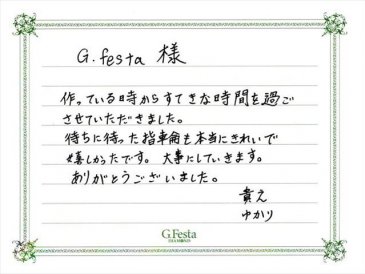 G.festa 様
作っている時からすてきな時間を過ご
させていただきました。
待ちに待った指輪も本当にきれいで
嬉しかったです。大事にしていきます。
ありがとうございました。
貴え
ゆかり
G.Festa
DIAMOND